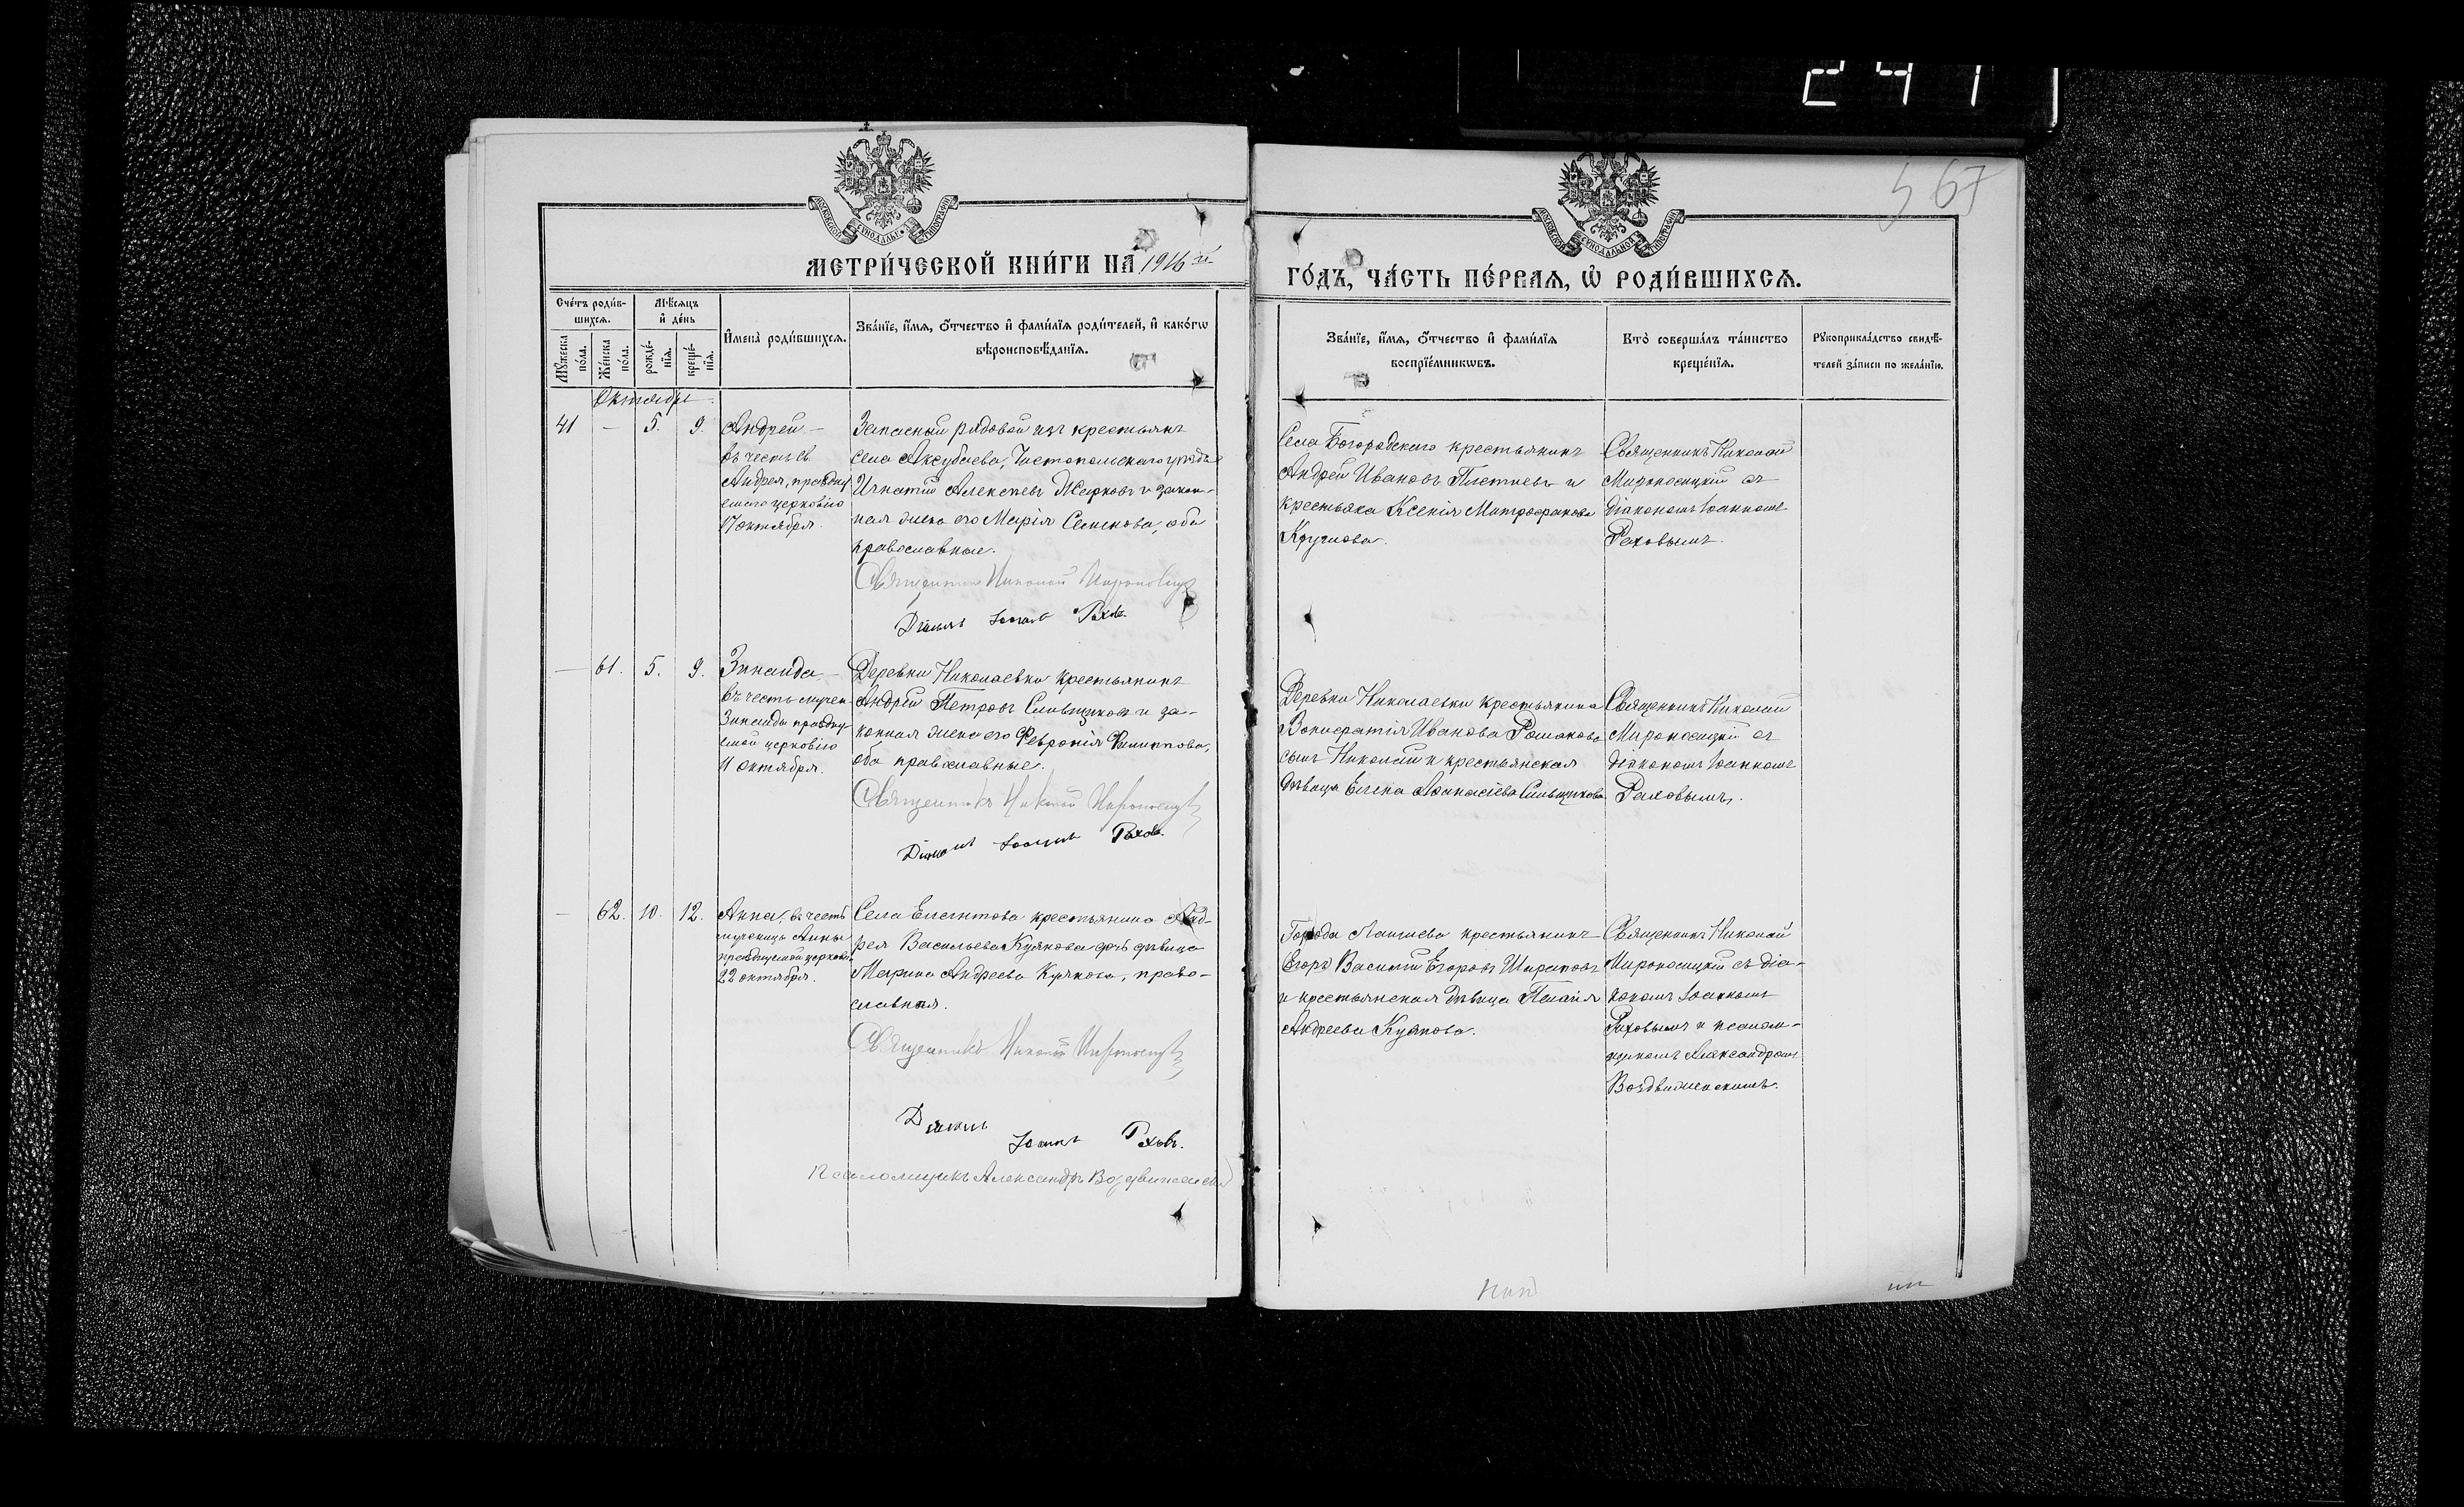 241
567
МОСКОВСКОЙ СѴНОДАЛЬНОЙ ТИПОГРАФІИ
МОСКОВСКОЙ СѴНОДАЛЬНОЙ ТИПОГРАФІИ
МЕТРИ́ЧЕСКОЙ КНИ́ГИ НА̀ 1916й
ГО́ДЪ, ЧА́СТЬ ПЕ́РВАЯ, Ѽ РОДИ́ВШИХСЯ.
Сче́тъ роди́в-
шихся.
Мѣ́сяцъ
и҆ де́нь
Мꙋ́жеска
по́ла.
Же́нска
по́ла.
рожде́-
нїя.
креще́-
нїя.
И҆мена̀ роди́вшихся.
Зва́нїе, и҆́мя, ѻ҆́тчество и҆ фами́лїя роди́телей, и҆ како́гѡ
вѣроисповѣ́данїя.
Зва́нїе, и҆́мя, ѻ҆́тчество и҆ фами́лїя
воспрїе́мникѡвъ.
Кто̀ соверша́лъ та́инство
креще́нїя.
Рꙋкоприкла́дство свидѣ́-
телей за́писи по жела́нїю.
Октябрь
41 — 5. 9.
Андрей —
въ честь св.
Андрея, празdну
емаго церковію
17 октября.
Запасный рядовой изъ крестьянъ
села Аксубаева, Чистопольскаго уѣзда
Игнатій Алексѣевъ Жарковъ и закон-
ная жена его Марія Семенова, оба
православные.
Священникъ Николай Мироносицк
Діаконъ Іоаннъ Раховъ.
Села Богородскаго крестьянинъ
Андрей Ивановъ и
крестьянка Ксенія Митрофанова
Круглова.
Священникъ Николай
Мироносицкій съ
діакономъ Іоанномъ
Раховымъ.
— 61. 5. 9.
Зинаида —
въ честь мучен
Зинаиды празdну
емой церковію
11 октября.
Деревни Николаевки крестьянинъ
Андрей Петровъ и за-
конная жена его Февронія Филиппова,
оба православные.
Священникъ Николай Мироносицк
Діаконъ Іоаннъ Раховъ.
Деревни Николаевки крестьянина
Ивановa
сынъ Николай и крестьянская
дѣвица Елена Аѳанасіева
Священникъ Николай
Мироносицкій съ
діакономъ Іоанномъ
Раховымъ.
— 62. 10. 12.
Анна, въ честь
мученицы Анны
празднуемой церковію
22 октября.
Села крестьянина Анд-
рея Васильева Куякова дочь дѣвица
Марина Андреева Куякова, право-
славная.
Священникъ Николай Мироносицк
Діаконъ
Іоаннъ Раховъ.
Псаломщикъ Александръ Воздвиженскій
Города Лаишева крестьянинъ
Егоръ Василій Егоровъ
и крестьянская дѣвица Пелагія
Андреева Куякова.
Священникъ Николай
Мироносицкій съ діа-
кономъ Іоанномъ
Раховымъ и псалом-
щикомъ Александромъ
Воздвиженскимъ.